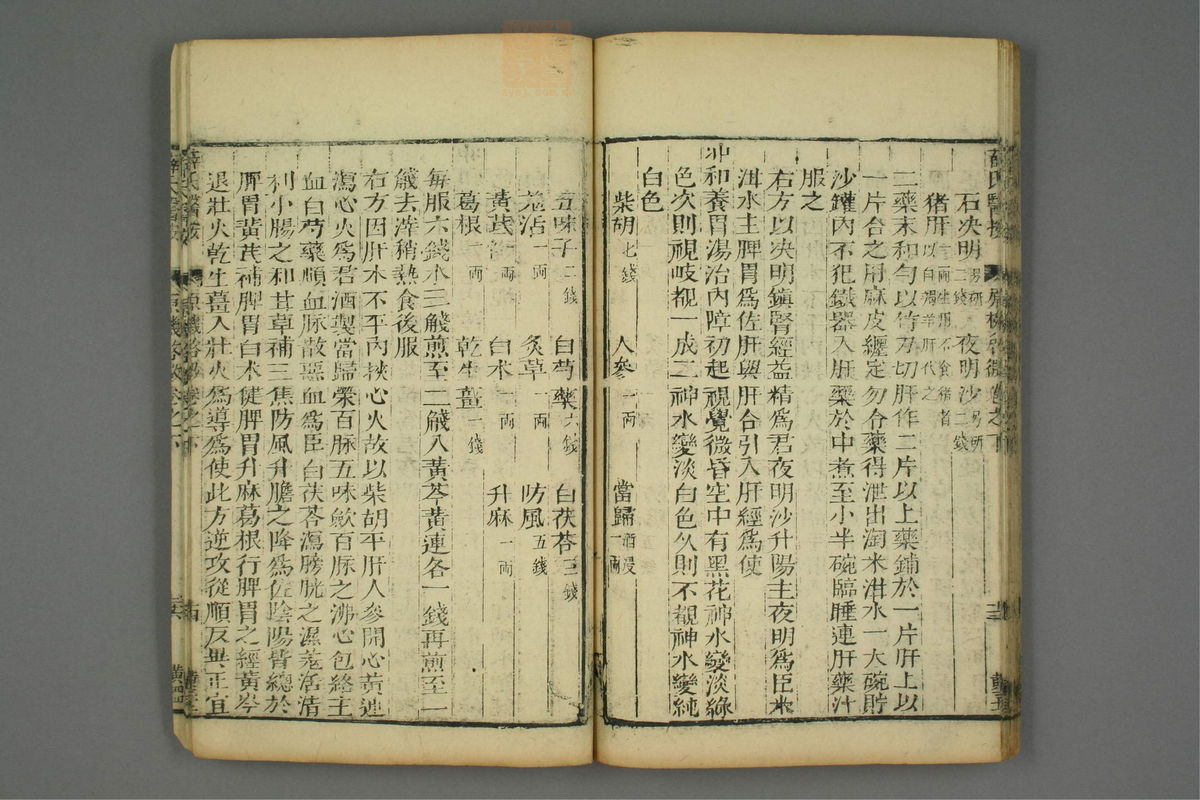 石决明二錢另研 夜明沙二錢另研
猪肝一兩生用不食猪者以白羯羊肝代之
二藥末和勻以竹刀切肝作二片以上藥鋪於一片肝上以
一片合之用麻皮纏定勿令藥得泄出淘米泔水一大碗貯
沙鑵內不犯鐵器入肝藥於中煮至小半碗臨睡連肝藥汁
服之
右方以决明鎮腎經益精爲君夜明沙升陽主夜明爲臣米
泔水主脾胃爲佐肝與肝合引入肝經爲使
冲和養胃湯治內障初起視覺微昏空中有黑花神水變淡綠
色次則視岐覩一成二神水變淡白色久則不覩神水變純
白色
柴胡七錢 人參一兩 當歸一兩酒浸
五味子二錢 白芍藥六錢 白茯苓三錢
羌活一兩 炙草一兩 防風五錢
黃芪一兩 白术一兩 升麻一兩
葛根一兩 乾生薑一錢
每服六錢水三觥煎至二觥入黃芩黃連各一錢再煎至一
觥去滓稍熱食後服
右方因肝木不平內挾心火故以柴胡平肝人參開心黃連
瀉心火爲君酒製當歸榮百脉五味歛百脉之沸心包絡主
血白芍藥順血脉散惡血爲臣白茯苓瀉膀胱之濕羌活清
利小腸之和甘草補三焦防風升膽之降爲佐陰陽皆總於
脾胃黃芪補脾胃白术健脾胃升麻葛根行脾胃之經黃芩
退壯火乾生薑入壯火爲導爲使此方逆攻從順反異正宜